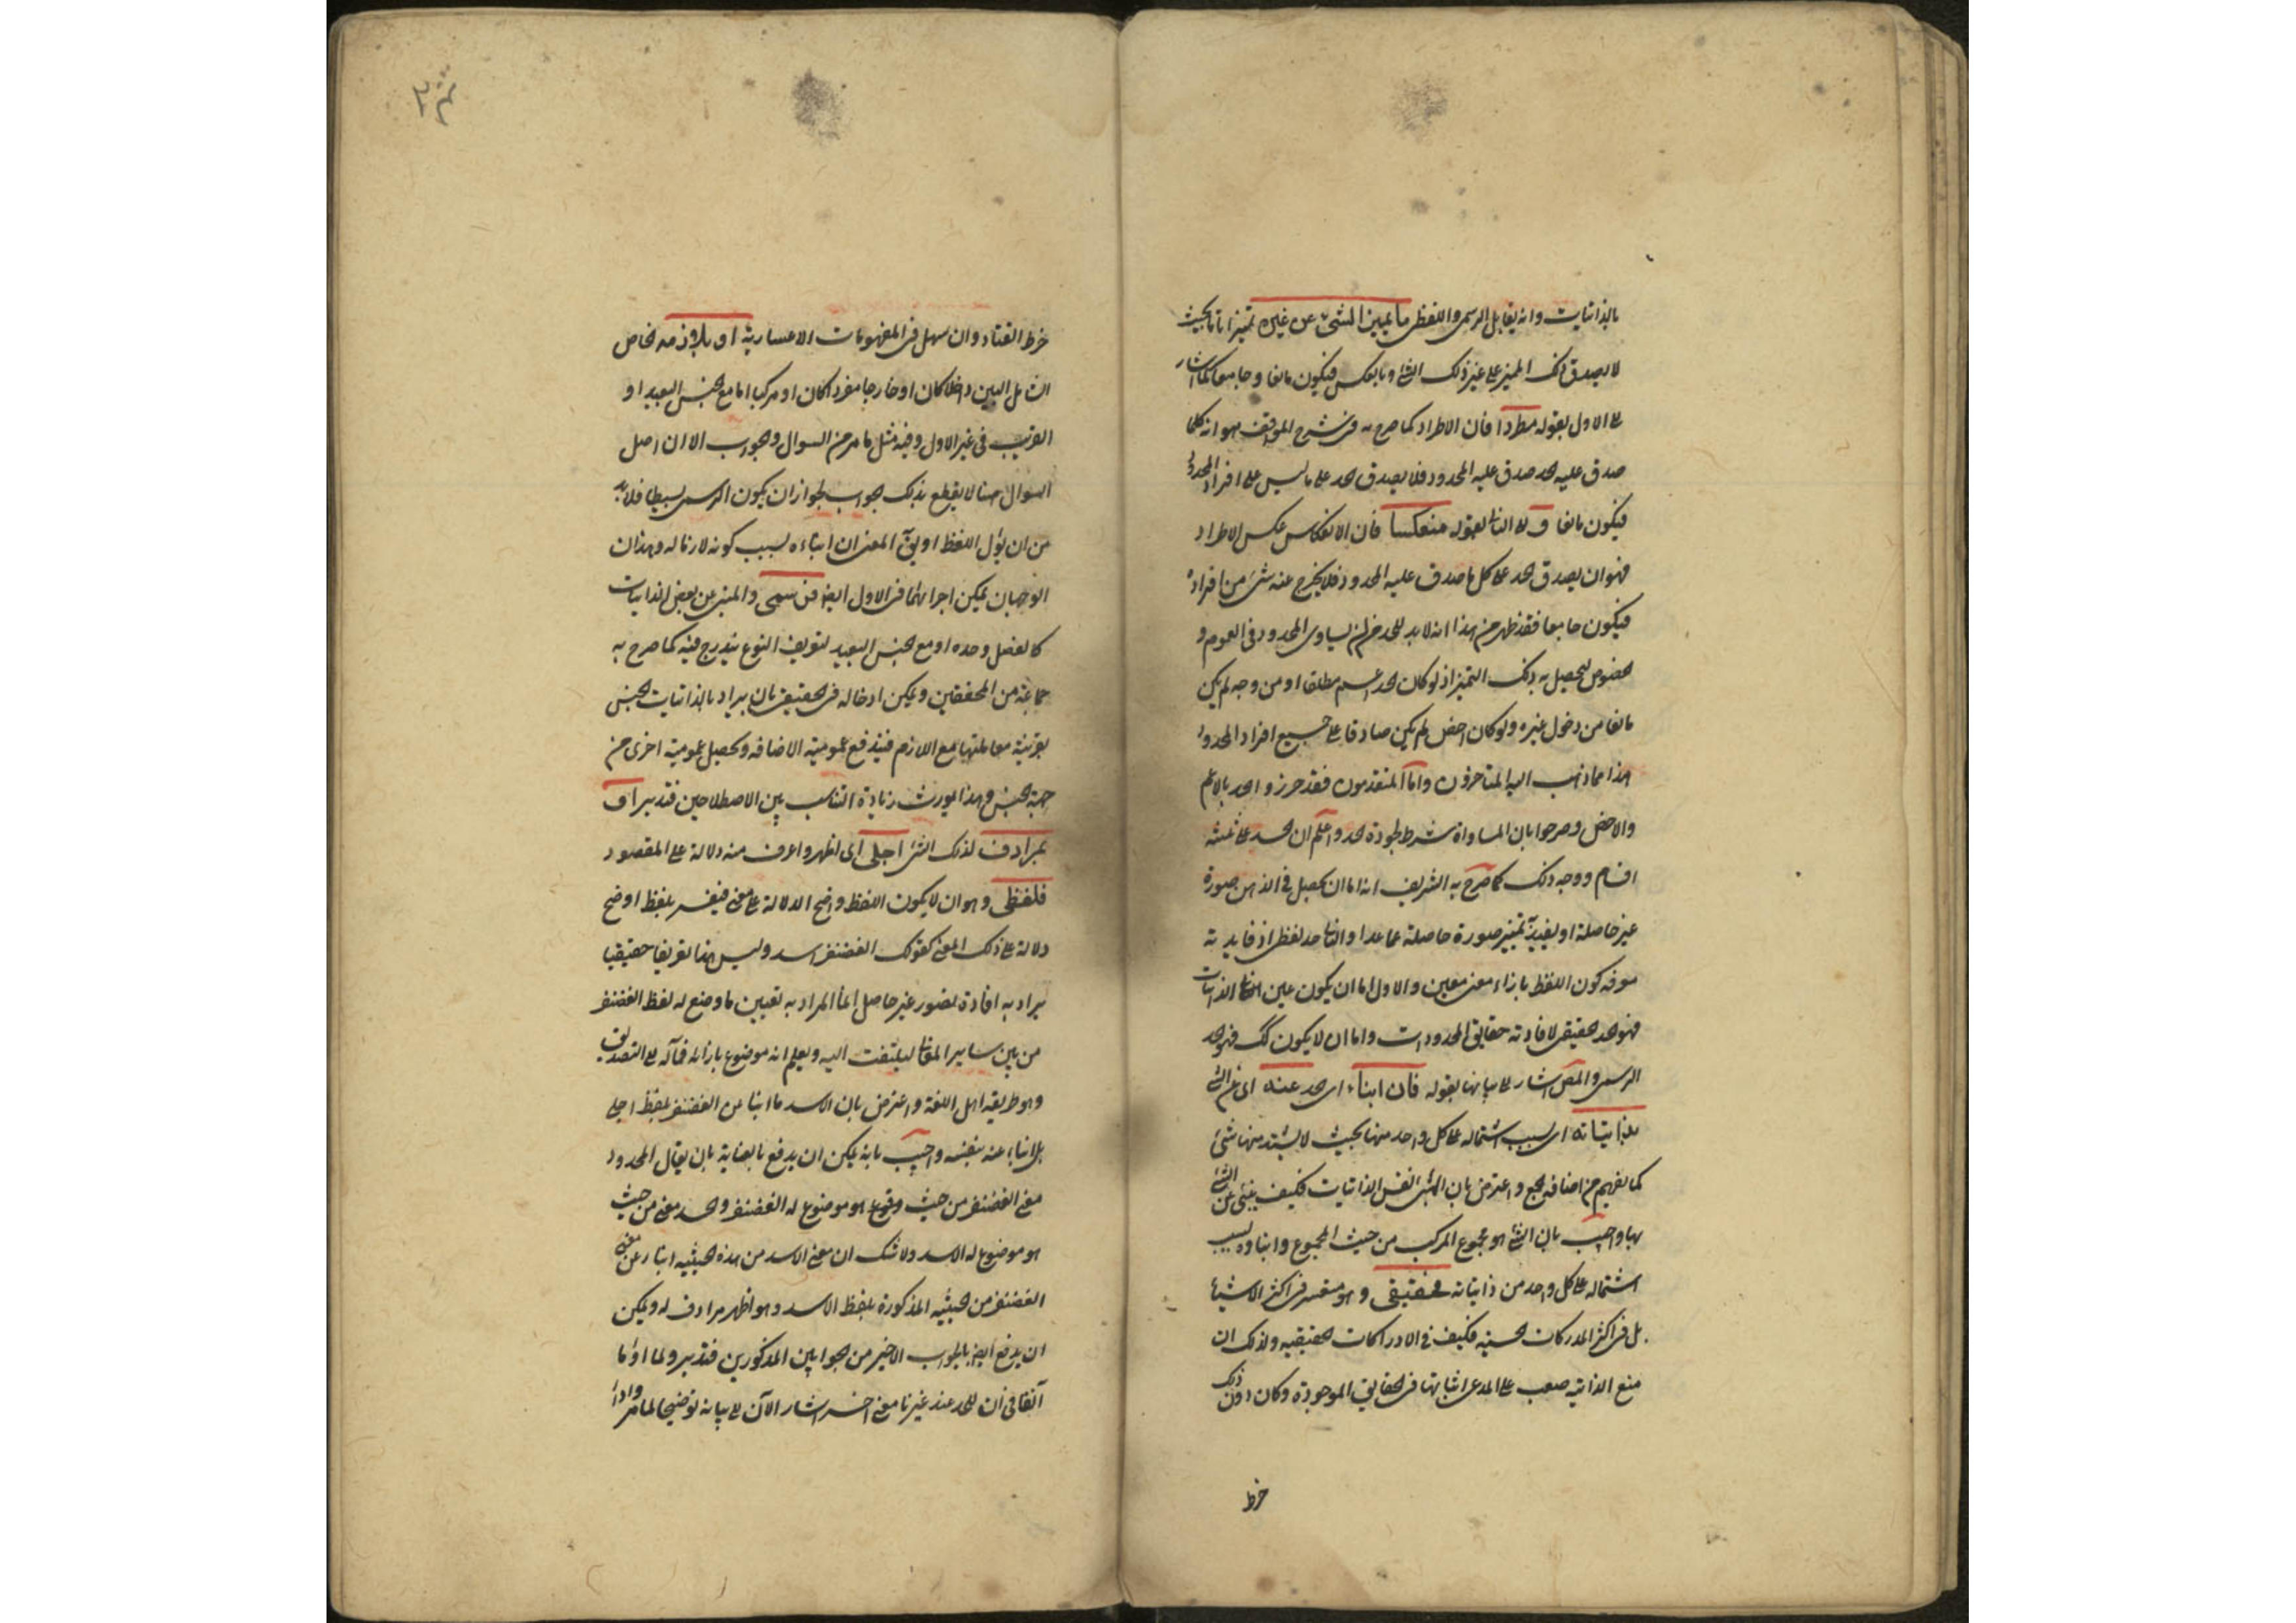 بالذاتيات وانه يقابل الرسمى واللفظى ما يميز الشئ عن غيره تميزا تاما بحيث
لا يصدق ذلك المميز على غير ذلك الشئ وبالعكس فيكون مانعا وجامعا كما اشار
على الاول بقوله مطردا فان الاطراد كما صرح به فى شرح المواقف هو انه كلما
صدق عليه الحد صدق عليه المحدود فلا يصدق الحد على ما ليس على افراد المحدود
فيكون مانعا و الى الثانى بقوله منعكسا فان الانعكاس عكس الاطراد
فهو ان يصدق الحد على كل ما صدق عليه المحدود فلا يخرج عنه شئ من افراده
فيكون جامعا فقد ظهر من هذا انه لا بد للحد من ان يساوى المحدود فى العموم و
الخصوص ليحصل به ذلك التميز اذ لو كان الحد اعم مطلقا او من وجه لم يكن
مانعا من دخول غيره ولو كان اخص لم يكن صادقا على جميع افراد المحدود
هذا مما ذهب اليه المتاخرون واما المتقدمون فقد جوزوا الحد بالاعم
والاخص وصرحوا بان المساواة شرط لجودة الحد واعلم ان الحد على ثلثة
اقسام ووجه ذلك كما صرح به الشريف انه اما ان يحصل فى الذهن صورة
غير حاصلة او يفيد تميز صورة حاصلة عما عدا والثانى حد لفظى اذ فايدته
معرفة كون اللفظ بازاء معنى معين والاول اما ان يكون عين الذاتيات
فهو حد حقيقى لافادته حقايق المحدودات واما ان لا يكون كك فهو الحد
الرسمى والمص اشار الى بيانها بقوله فان انباء اى الحد عنه اى عن الشئ
بذاتياته اى بسبب اشتماله على كل واحد منها بحيث لا يشذ منها شئ
كما يفهم من اضافة الجمع واعترض بان الشئ نفس الذاتيات فكيف ينبئ عن الشئ
بها واجيب بان الشئ هو مجموع المركب من حيث المجموع وانباؤه بسبب
اشتماله على كل واحد من ذاتياته فحقيقى وهو متعسر فى اكثر الاشياء
بل فى اكثر المدركات الحسية فكيف فى الادراكات الحقيقيه ولذلك ان
منع الذاتية صعب على المدعى اثباتها فى الحقايق الموجودة وكان دون ذلك
خرط
خرط القتاد وان سهل فى المفهومات الاعتبارية او بلازمه الخاص
الشامل البين داخلا كان او خارجا مفردا كان او مركبا اما مع الجنس البعيد او
القريب فى غير الاول وفيه مثل ما مر من السوال والجواب الا ان اصل
السوال هنا لا يقطع بذلك الجواب لجواز ان يكون الرسمى بسيطا فلا بد
من ان يؤل اللفظ او يق المعنى ان انباءه بسبب كونه لازما له وهذان
الوجهان يمكن اجرائهما فى الاول ايضا فرسمى والمنبئ عن بعض الذاتيات
كالفصل وحده او مع الجنس البعيد لتعريف النوع يندرج فيه كما صرح به
جماعة من المحققين ويمكن ادخاله فى الحقيقى بان يراد بالذاتيات الجنس
بقرينة مقابلتها مع اللازم فيندفع عمومية الاضافه ويحصل عمومية اخرى من
جهة الجنس وهذا يورث زيادة التناسب بين الاصطلاحين فتدبر او
بمرادف لذلك الشئ اجلى اى اظهر واعرف منه دلالة على المقصود
فلفظى وهو ان لا يكون اللفظ واضح الدلالة على معنى فيفسر بلفظ اوضح
دلالة على ذلك المعنى كقولك الغضنفر اسد وليس هذا تعريفا حقيقيا
يراد به افادة تصور غير حاصل انما المراد به تعيين ما وضع له لفظ الغضنفر
من بين ساير المعانى ليلتفت اليه ويعلم انه موضوع بازائه فمآله الى التصديق
وهو طريقة اهل اللغة واعترض بان الاسد ما انبا عن الغضنفر بلفظ اجلى
بل انباء عنه بنفسه واجيب بانه يمكن ان يدفع بالعناية بان يقال المحدود
معنى الغضنفر من حيث وقوع هو موضوع له الغضنفر والحد معنى من حيث
هو موضوع له الاسد ولا شك ان معنى الاسد من هذه الحيثيه انبا عن معنى
الغضنفر من الحيثيه المذكورة بلفظ الاسد وهو اظهر مرادف له ويمكن
ان يدفع ايضا بالجواب الاخير من الجوابين المذكورين فتدبر ولما اوما
آنفا فى ان للحد عند غيرنا معنى اخر اشار الآن الى بيانه توضيحا لما مر